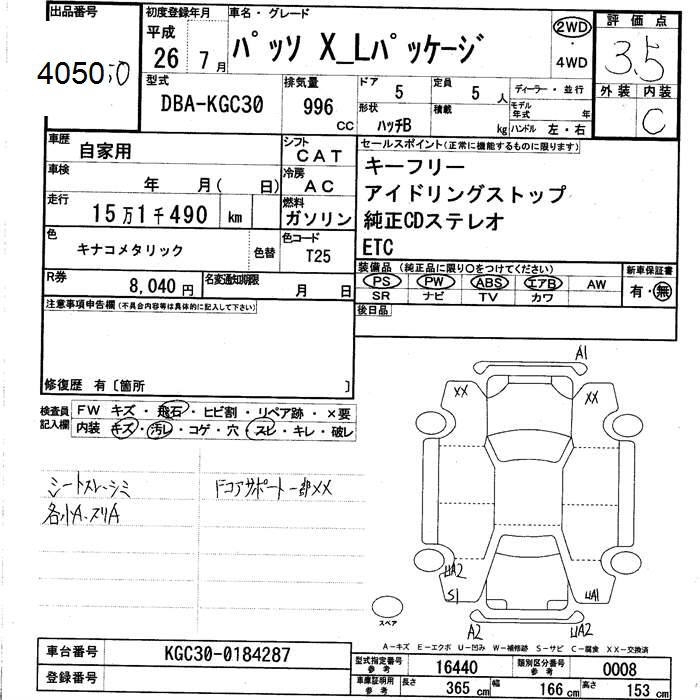 出品番号
405050
初度登録年月
平成
26年 7月
車名・グレード
パッソ X_Lパッケージ
2WD
・
4WD
評価点
3.5
外装 内装
C
型式
DBA-KGC30
排気量
996
CC
ドア
5
定員
5人
形状
ハッチB
積載
kg
ディーラー・並行
モデル年式 年
ハンドル 左・右
車歴
自家用
シフト
CAT
車検
年 月( 日)
冷房
AC
走行
15万1千490 km
燃料
ガソリン
色
キナコメタリック
色替
色コード
T25
R券
8,040円
名変通知期限
月 日
セールスポイント(正常に機能するものに限ります)
キーフリー
アイドリングストップ
純正CDステレオ
ETC
装備品(純正品に限り○をつけてください)
PS PW ABS エアB AW
SR ナビ TV カワ
新車保証書
有・無
後日品
注意事項申告欄(不具合内容等は具体的に記入して下さい)
修復歴 有〔箇所 〕
検査員記入欄
FW キズ・飛石・ヒビ割・リペア跡・×要
内装 キズ・汚レ・コゲ・穴・スレ・キレ・破レ
シートスレ・シミ
各小A・スリA
ドコアサポート一部XX
A1
XX
XX
UA2
S1
UA1
A2
UA2
スペア
A-キズ E-エクボ U-凹み W-補修跡 S-サビ C-腐食 XX-交換済
車台番号
KGC30-0184287
登録番号
型式指定番号
参考
16440
類別区分番号
参考
0008
車庫証明用
参考
長さ
365 cm
幅
166 cm
高さ
153 cm